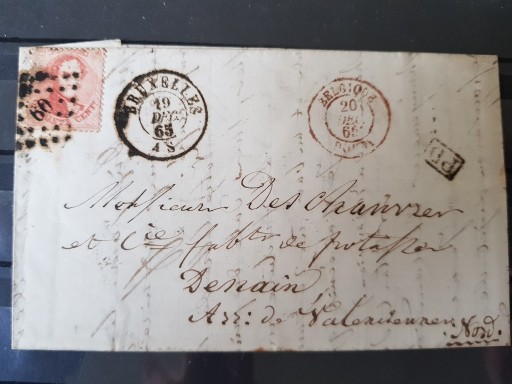 60
CENT
BRUXELLES
19
DEC
65
4 S
BELGIQUE
20
DEC
65
PD
Monsieur Deschanvrer
et Cie fabts de potasse
Denain
Arr: de Valenciennes
Nord.